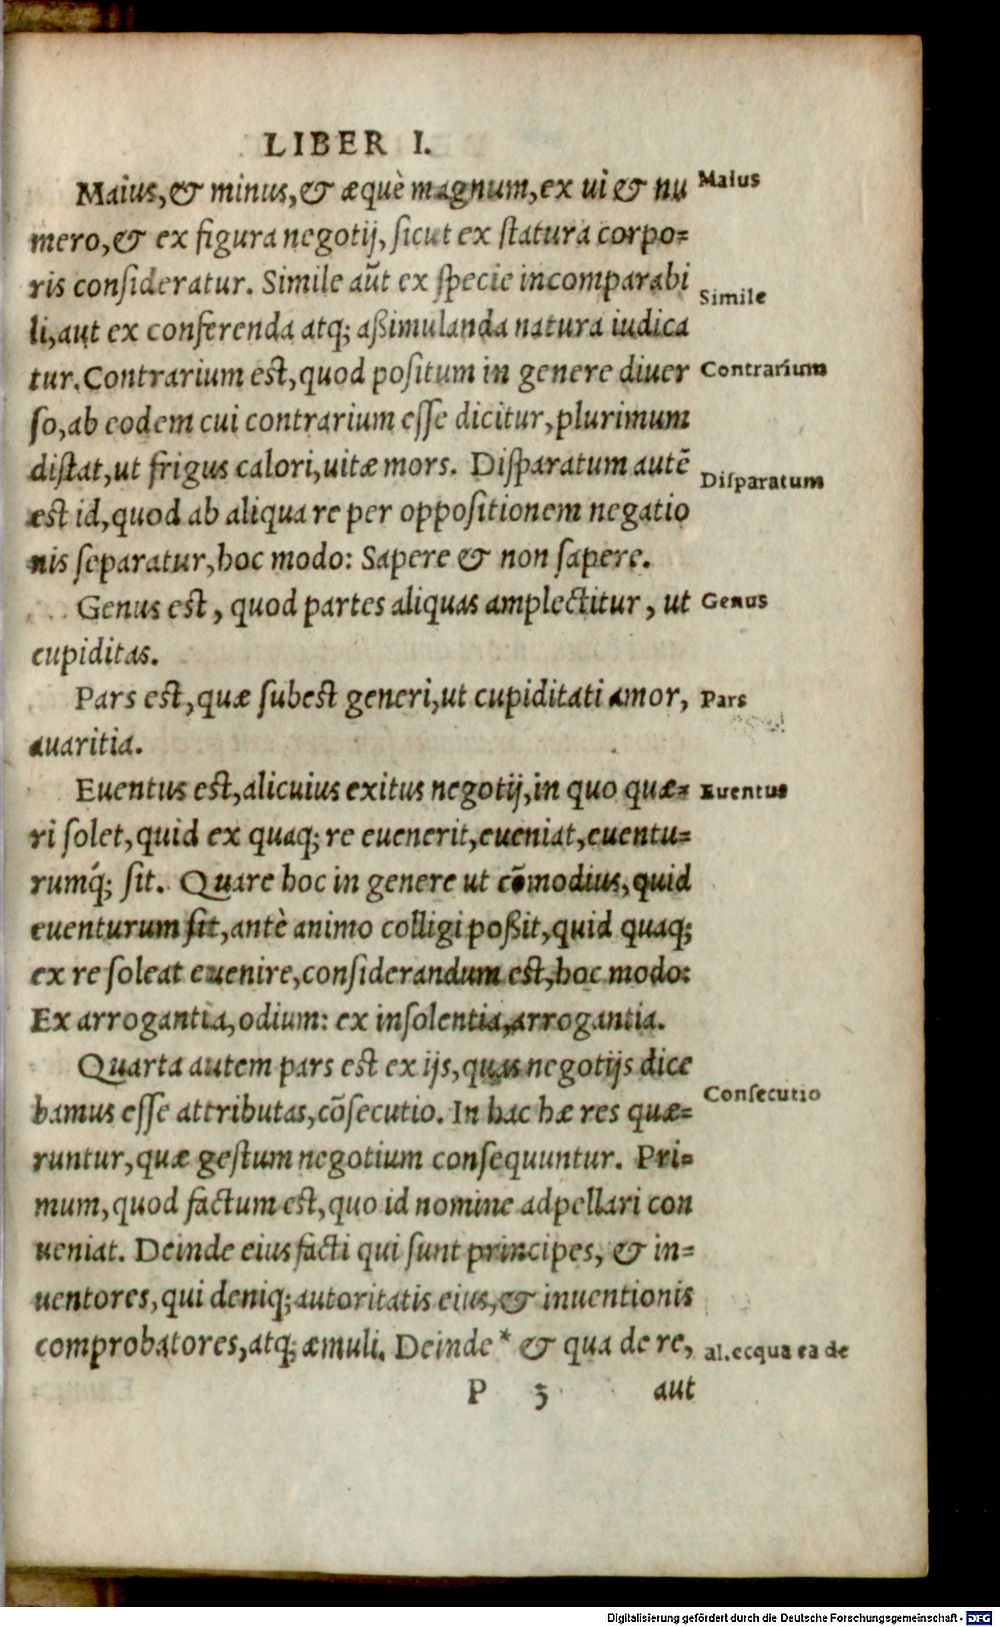 LIBER I.
Maius, & minus, & æquè magnum, ex ui & nu
mero, & ex figura negotij, sicut ex statura corpo=
ris consideratur. Simile aūt ex specie incomparabi
li, aut ex conferenda atq; aßimulanda natura iudica
tur. Contrarium est, quod positum in genere diuer
so, ab eodem cui contrarium esse dicitur, plurimum
distat, ut frigus calori, uitæ mors. Disparatum autē
est id, quod ab aliqua re per oppositionem negatio
nis separatur, hoc modo: Sapere & non sapere.
Genus est, quod partes aliquas amplectitur, ut
cupiditas.
Pars est, quæ subest generi, ut cupiditati amor,
auaritia.
Euentus est, alicuius exitus negotij, in quo quæ=
ri solet, quid ex quaq; re euenerit, eueniat, euentu=
rumq́; sit. Quare hoc in genere ut cōmodius, quid
euenturum sit, antè animo colligi poßit, quid quaq;
ex re soleat euenire, considerandum est, hoc modo:
Ex arrogantia, odium: ex insolentia, arrogantia.
Quarta autem pars est ex ijs, quas negotijs dice
bamus esse attributas, cōsecutio. In hac hæ res quæ=
runtur, quæ gestum negotium consequuntur. Pri=
mum, quod factum est, quo id nomine adpellari con
ueniat. Deinde eius facti qui sunt principes, & in=
uentores, qui deniq; autoritatis eius, & inuentionis
comprobatores, atq; æmuli. Deinde * & qua de re,
P 3 aut
Maius
Simile
Contrarium
Disparatum
Genus
Pars
Euentus
Consecutio
al. ecqua ea de
Digitalisierung gefördert durch die Deutsche Forschungsgemeinschaft - DFG